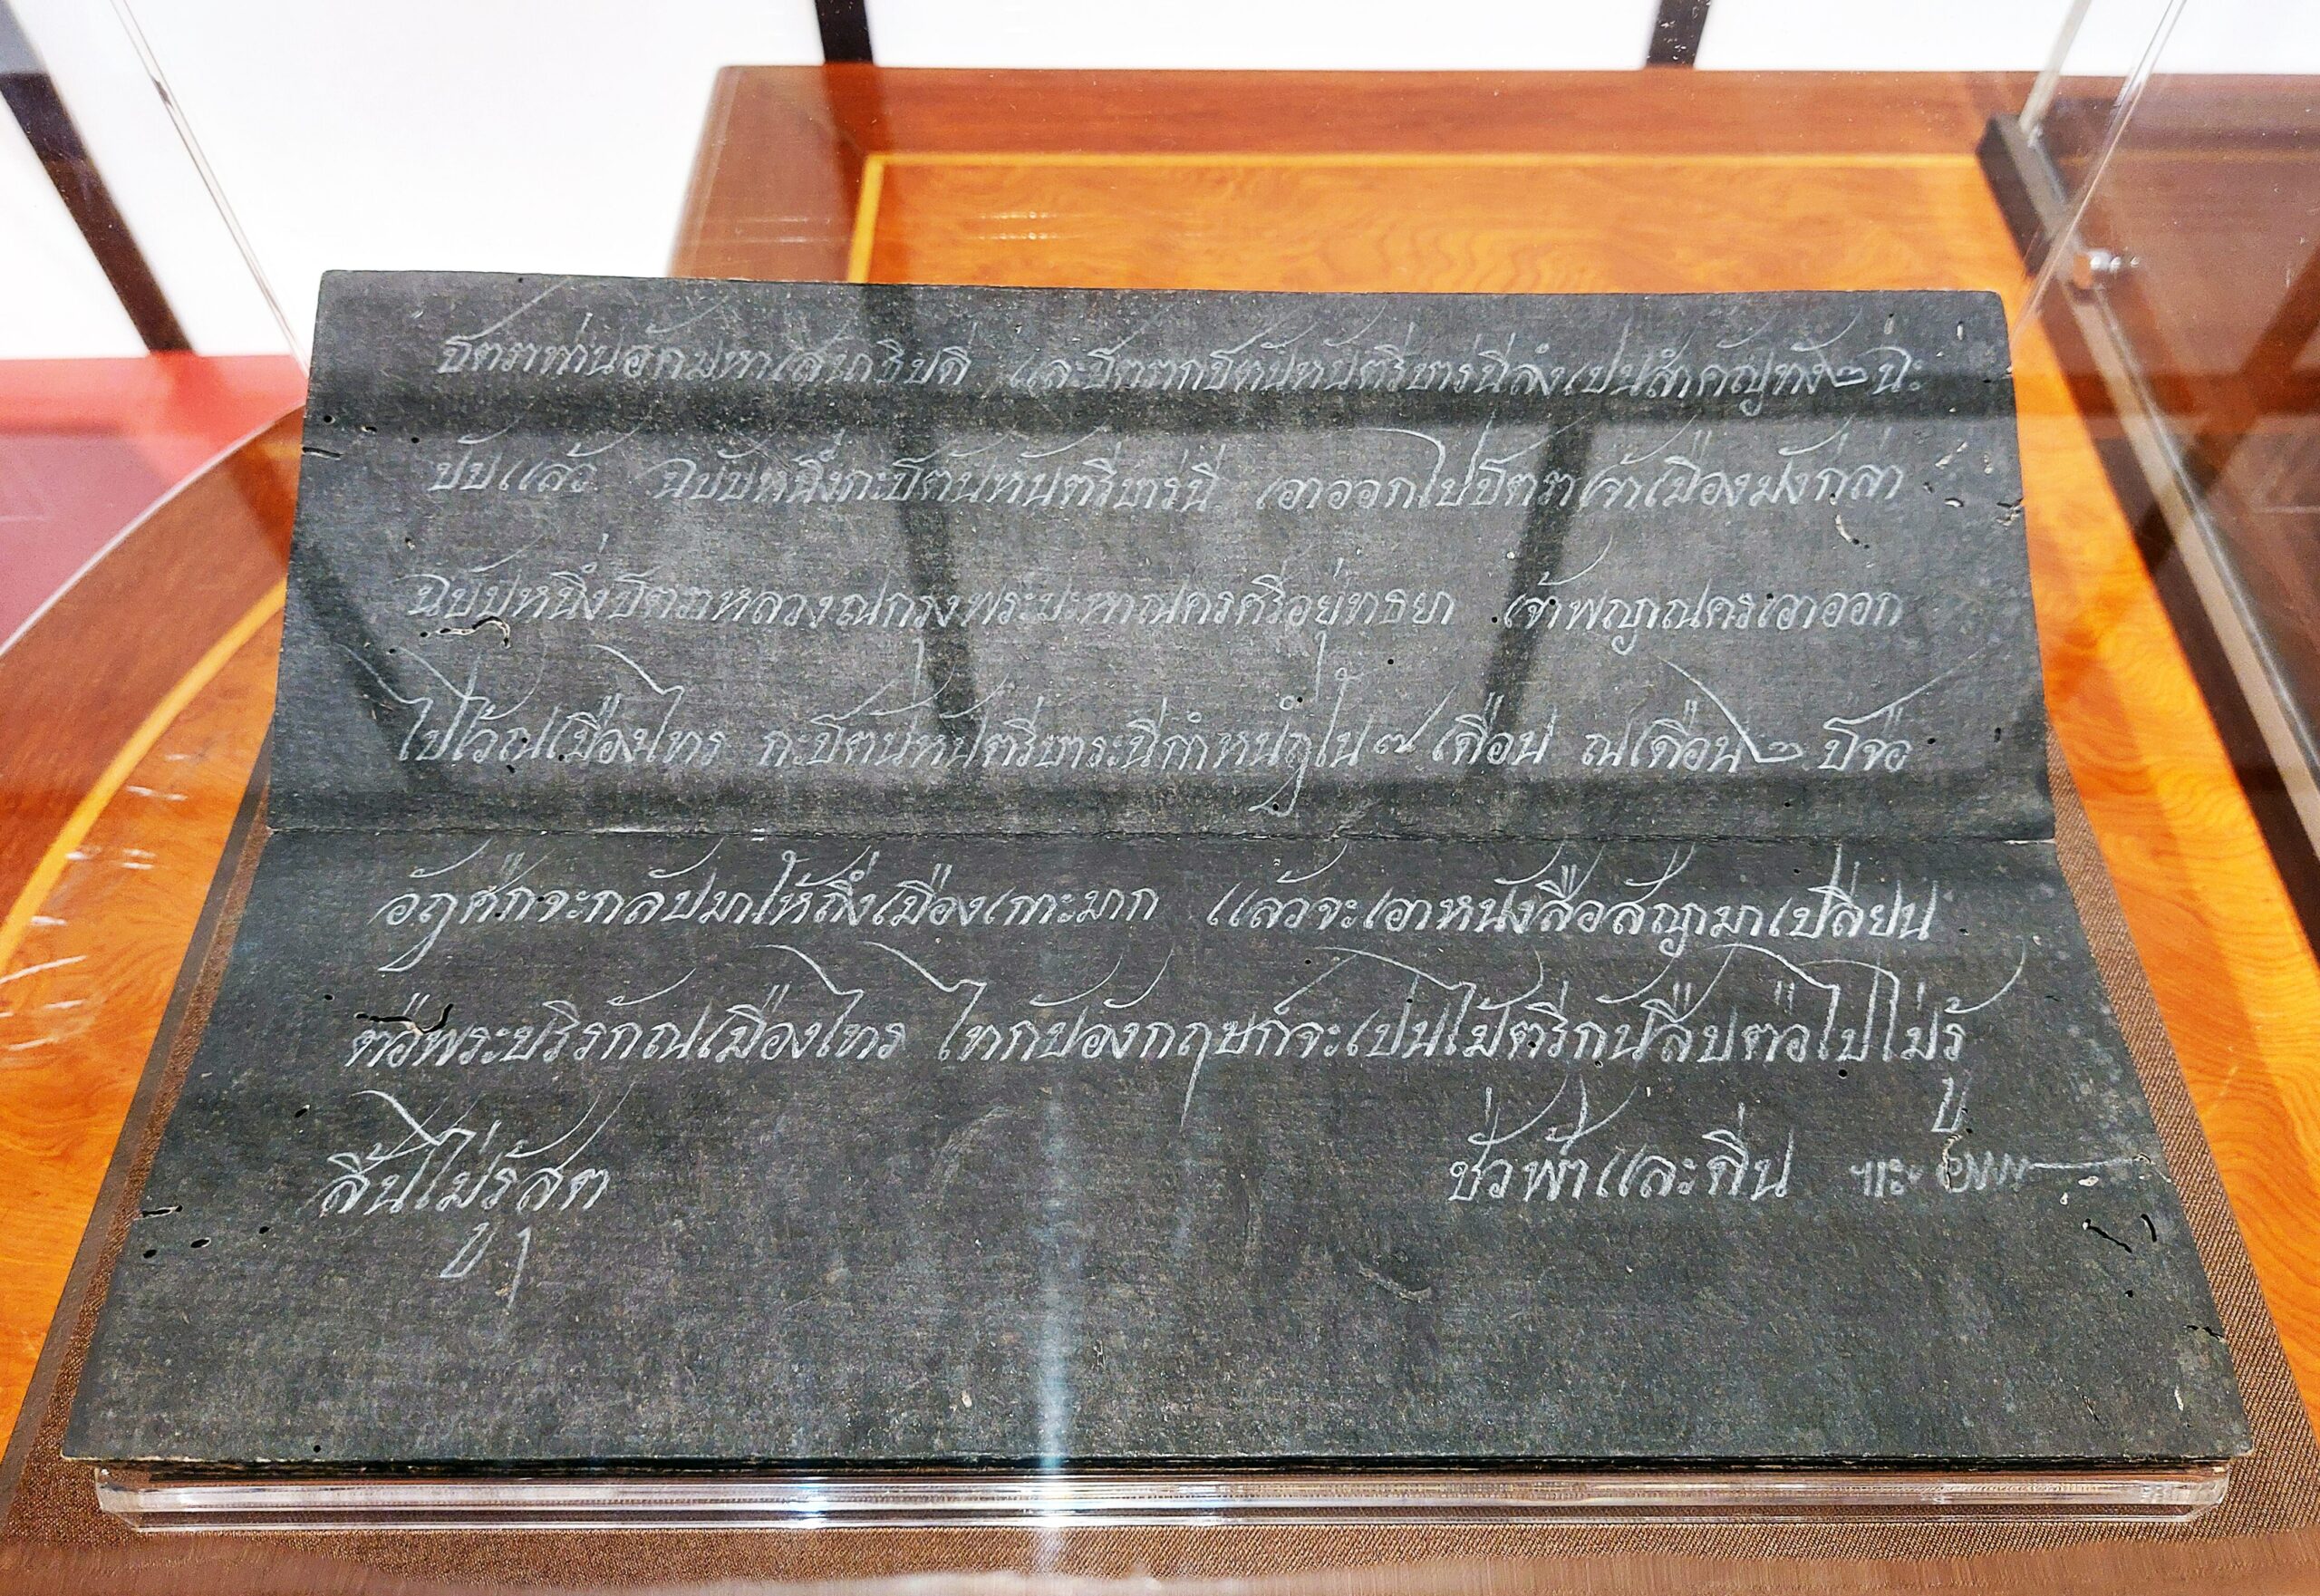 ปิดตราท่านอักมหาเสนาธิบดี และปิดตากปิตันหันตรีบารนีลงเป็นสำคัญทัง๒ฉะ
บับแล้ว ฉบับหนึ่งกะปิตันหันตรีบารนี เอาออกไปปิดตราเจ้าเมืองมังกล่า
ฉบับหนึ่งปิดตราหลวงณกรุงพระมหาณครศรีอยุ่ทธยา เจ้าพญาณครเอาออก
ไปไว้ณเมืองไทร กะปิตันหันตรีบาระนีกำหนฎใน๗เดือน ณเดือน๒ปีจอ
อัฎศกจะกลับมาให้ถึงเมืองเกาะมาก แล้วจะเอาหนังสือสัญามาเปลี่ยน
ที่พระบริรักณเมืองไทร ไทกับอังกฤษก็จะเป็นไม้ตรีกันสืบต่อไปไม่รู้
สิ้นไม่รู้สุด ชั่วฟ้าและดิน